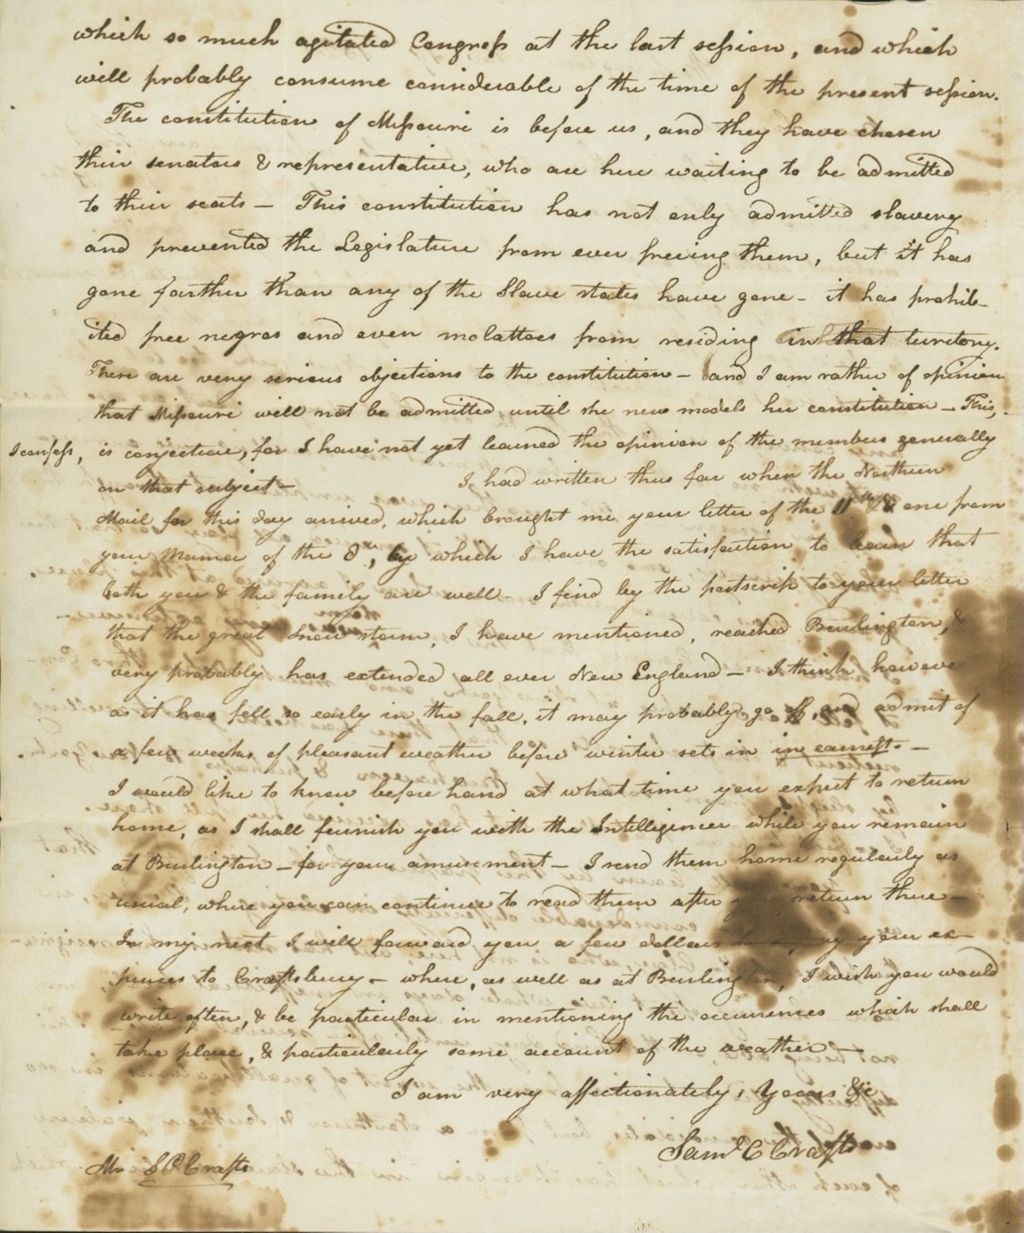 which so much agitated Congress at the last session, and which
will probably consume considerable of the time of the present session.
The constitution of Missouri is before us, and they have chosen
their senators & representative, who are here waiting to be admitted
to their seats — This constitution has not only admitted slavery
and prevented the Legislature from ever freeing them, but it has
gone farther than any of the Slave states have gone - it has prohib-
ited free negros and even molattoes from residing in that territory.
There are very serious objections to the constitution — and I am rather of opinion
that Missouri will not be admitted until she new models her constitution — This,
I confess, is conjecture, for I have not yet learned the opinion of the members generally
on that subject — I had written thus far when the Northern
Mail for this day arrived, which brought me your letter of the 11th, & one from
your Mamma of the 8th, by which I have the satisfaction to learn that
both you & the family are well - I find by the postscript to your letter
that the great snow storm, I have mentioned, reached Burlington, &
very probably has extended all over New England — I think however
as it has fell so early in the fall, it may probably go off, and admit of
a few weeks of pleasant weather before winter sets in in earnest. —
I would like to know before hand at what time you expect to return
home, as I shall furnish you with the Intelligencer while you remain
at Burlington — for your amusement — I send them home regularly as
usual, where you can continue to read them after your return there —
In my next I will forward you a few dollars your ex-
pences to Craftsbury — where, as well as at Burlington, I wish you would
write often, & be particular in mentioning the occurences which shall
take place, & particularly some account of the weather —
I am very affectionately, Yours &c
Saml C Crafts
Mr S P Crafts